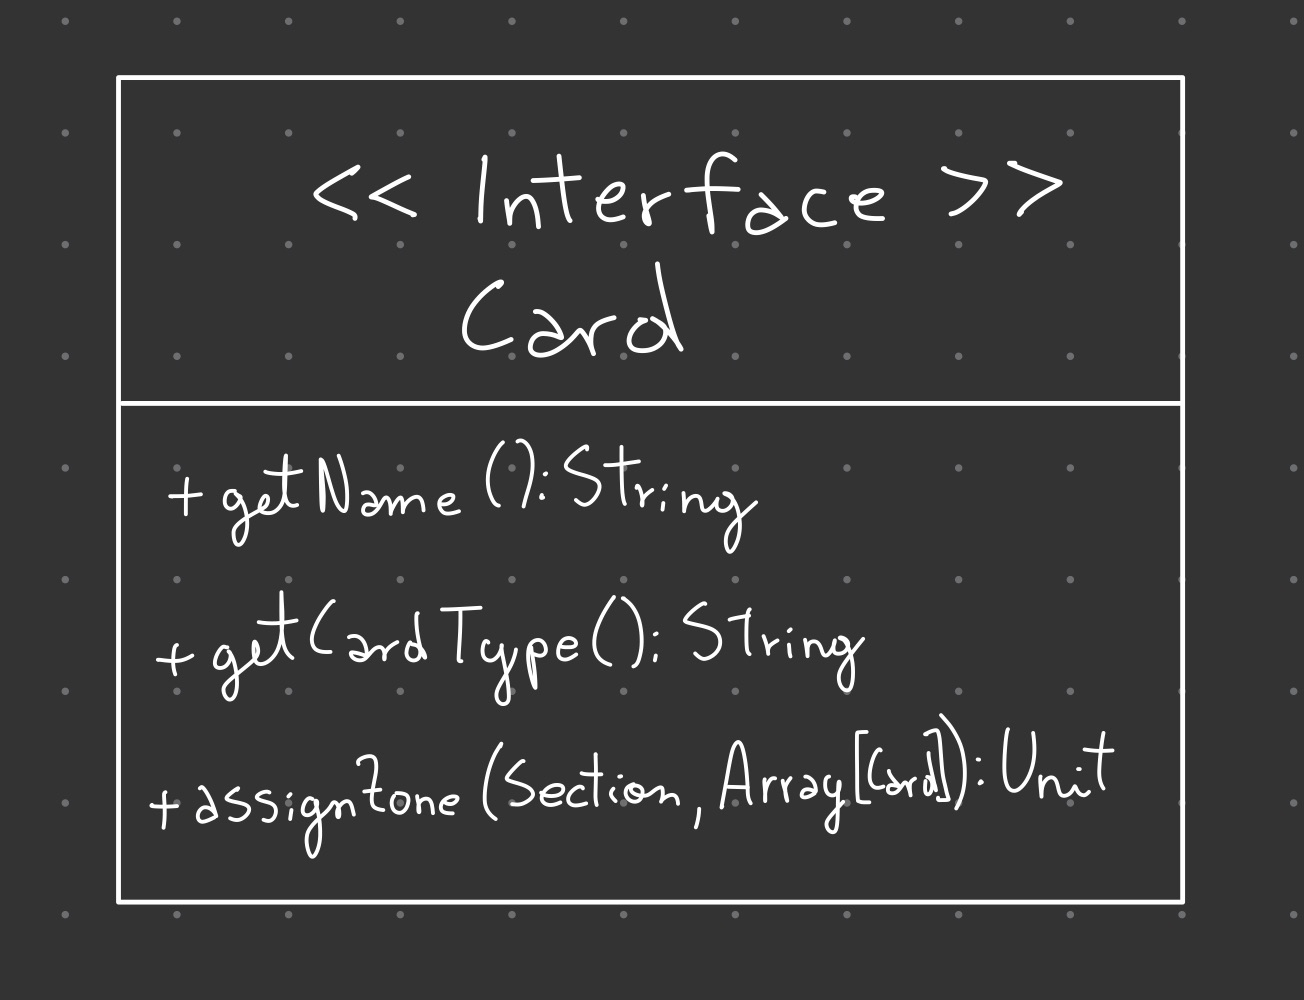 << Interface >>
Card
+ getName (): String
+ getCardType(): String
+ assignZone (Section, Array[Card]): Unit